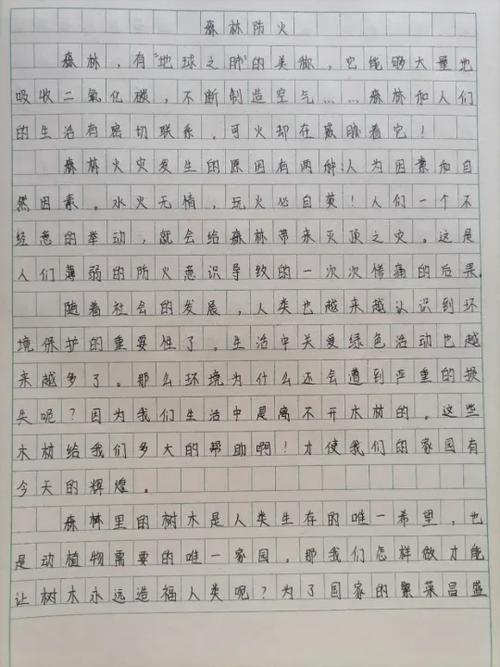 森林防火
森林，有“地球之肺”的美称，它能够大量地
吸收二氧化碳，不断制造空气……森林和人们
的生活有密切联系。可火却在威胁着它！
森林火灾发生的原因有两种！人为因素和自
然因素。水火无情，玩火必自焚！人们一个不
经意的举动，就会给森林带来灭顶之灾。这是
人们薄弱的防火意识导致的一次次惨痛的后果。
随着社会的发展，人类也越来越认识到环
境保护的重要性了。生活中关爱绿色活动也越
来越多了。那么环境为什么还会遭到严重的损
失呢？因为我们生活中是离不开木材的。这些
木材给我们多大的帮助啊！才使我们的家园有
今天的辉煌。
森林里的树木是人类生存的唯一希望，也
是动植物需要的唯一家园。那我们怎样做才能
让树木永远造福人类呢？为了国家的繁荣昌盛